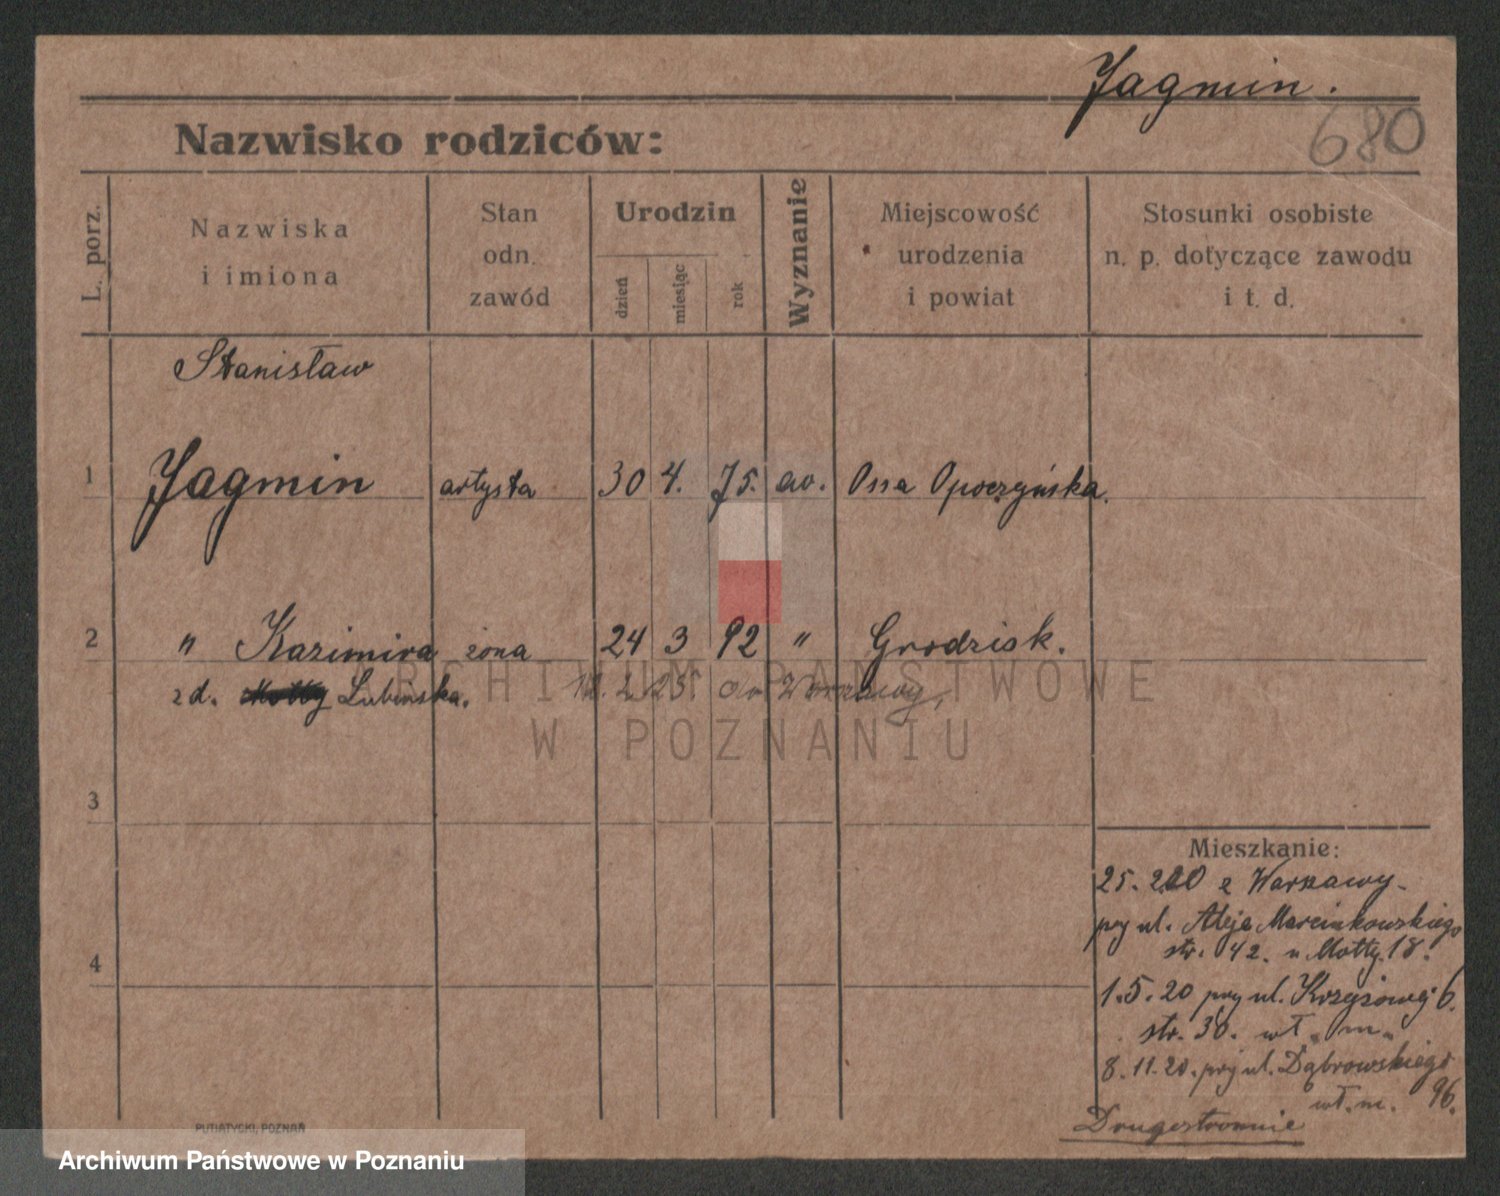 Jagmin.
680
Nazwisko rodziców:
L. porz.
Nazwiska
i imiona
Stan
odn.
zawód
Urodzin
dzień
miesiąc
rok
Wyznanie
Miejscowość
urodzenia
i powiat
Stosunki osobiste
n. p. dotyczące zawodu
i t. d.
Stanisław
1 Jagmin artysta 30 4. 75. Ossa Opoczyńska.
2 " Kazimira żona 24 3 92 " Grodzisk.
z d. Lubińska. 2 25 do Warszawy,
ARCHIWUM PAŃSTWOWE
W POZNANIU
3
4
Mieszkanie:
25. 2 20 z Warszawy-
przy ul. Aleja Marcinkowskiego
str. 42. u Motty. 18.
1.5.20 przy ul. Krzyżowej 6.
str. 30. wł. m.
8.11.20. przy ul. Dąbrowskiego
wł. m. 96.
Drugostronnie
PUTIATYCKI, POZNAŃ
Archiwum Państwowe w Poznaniu